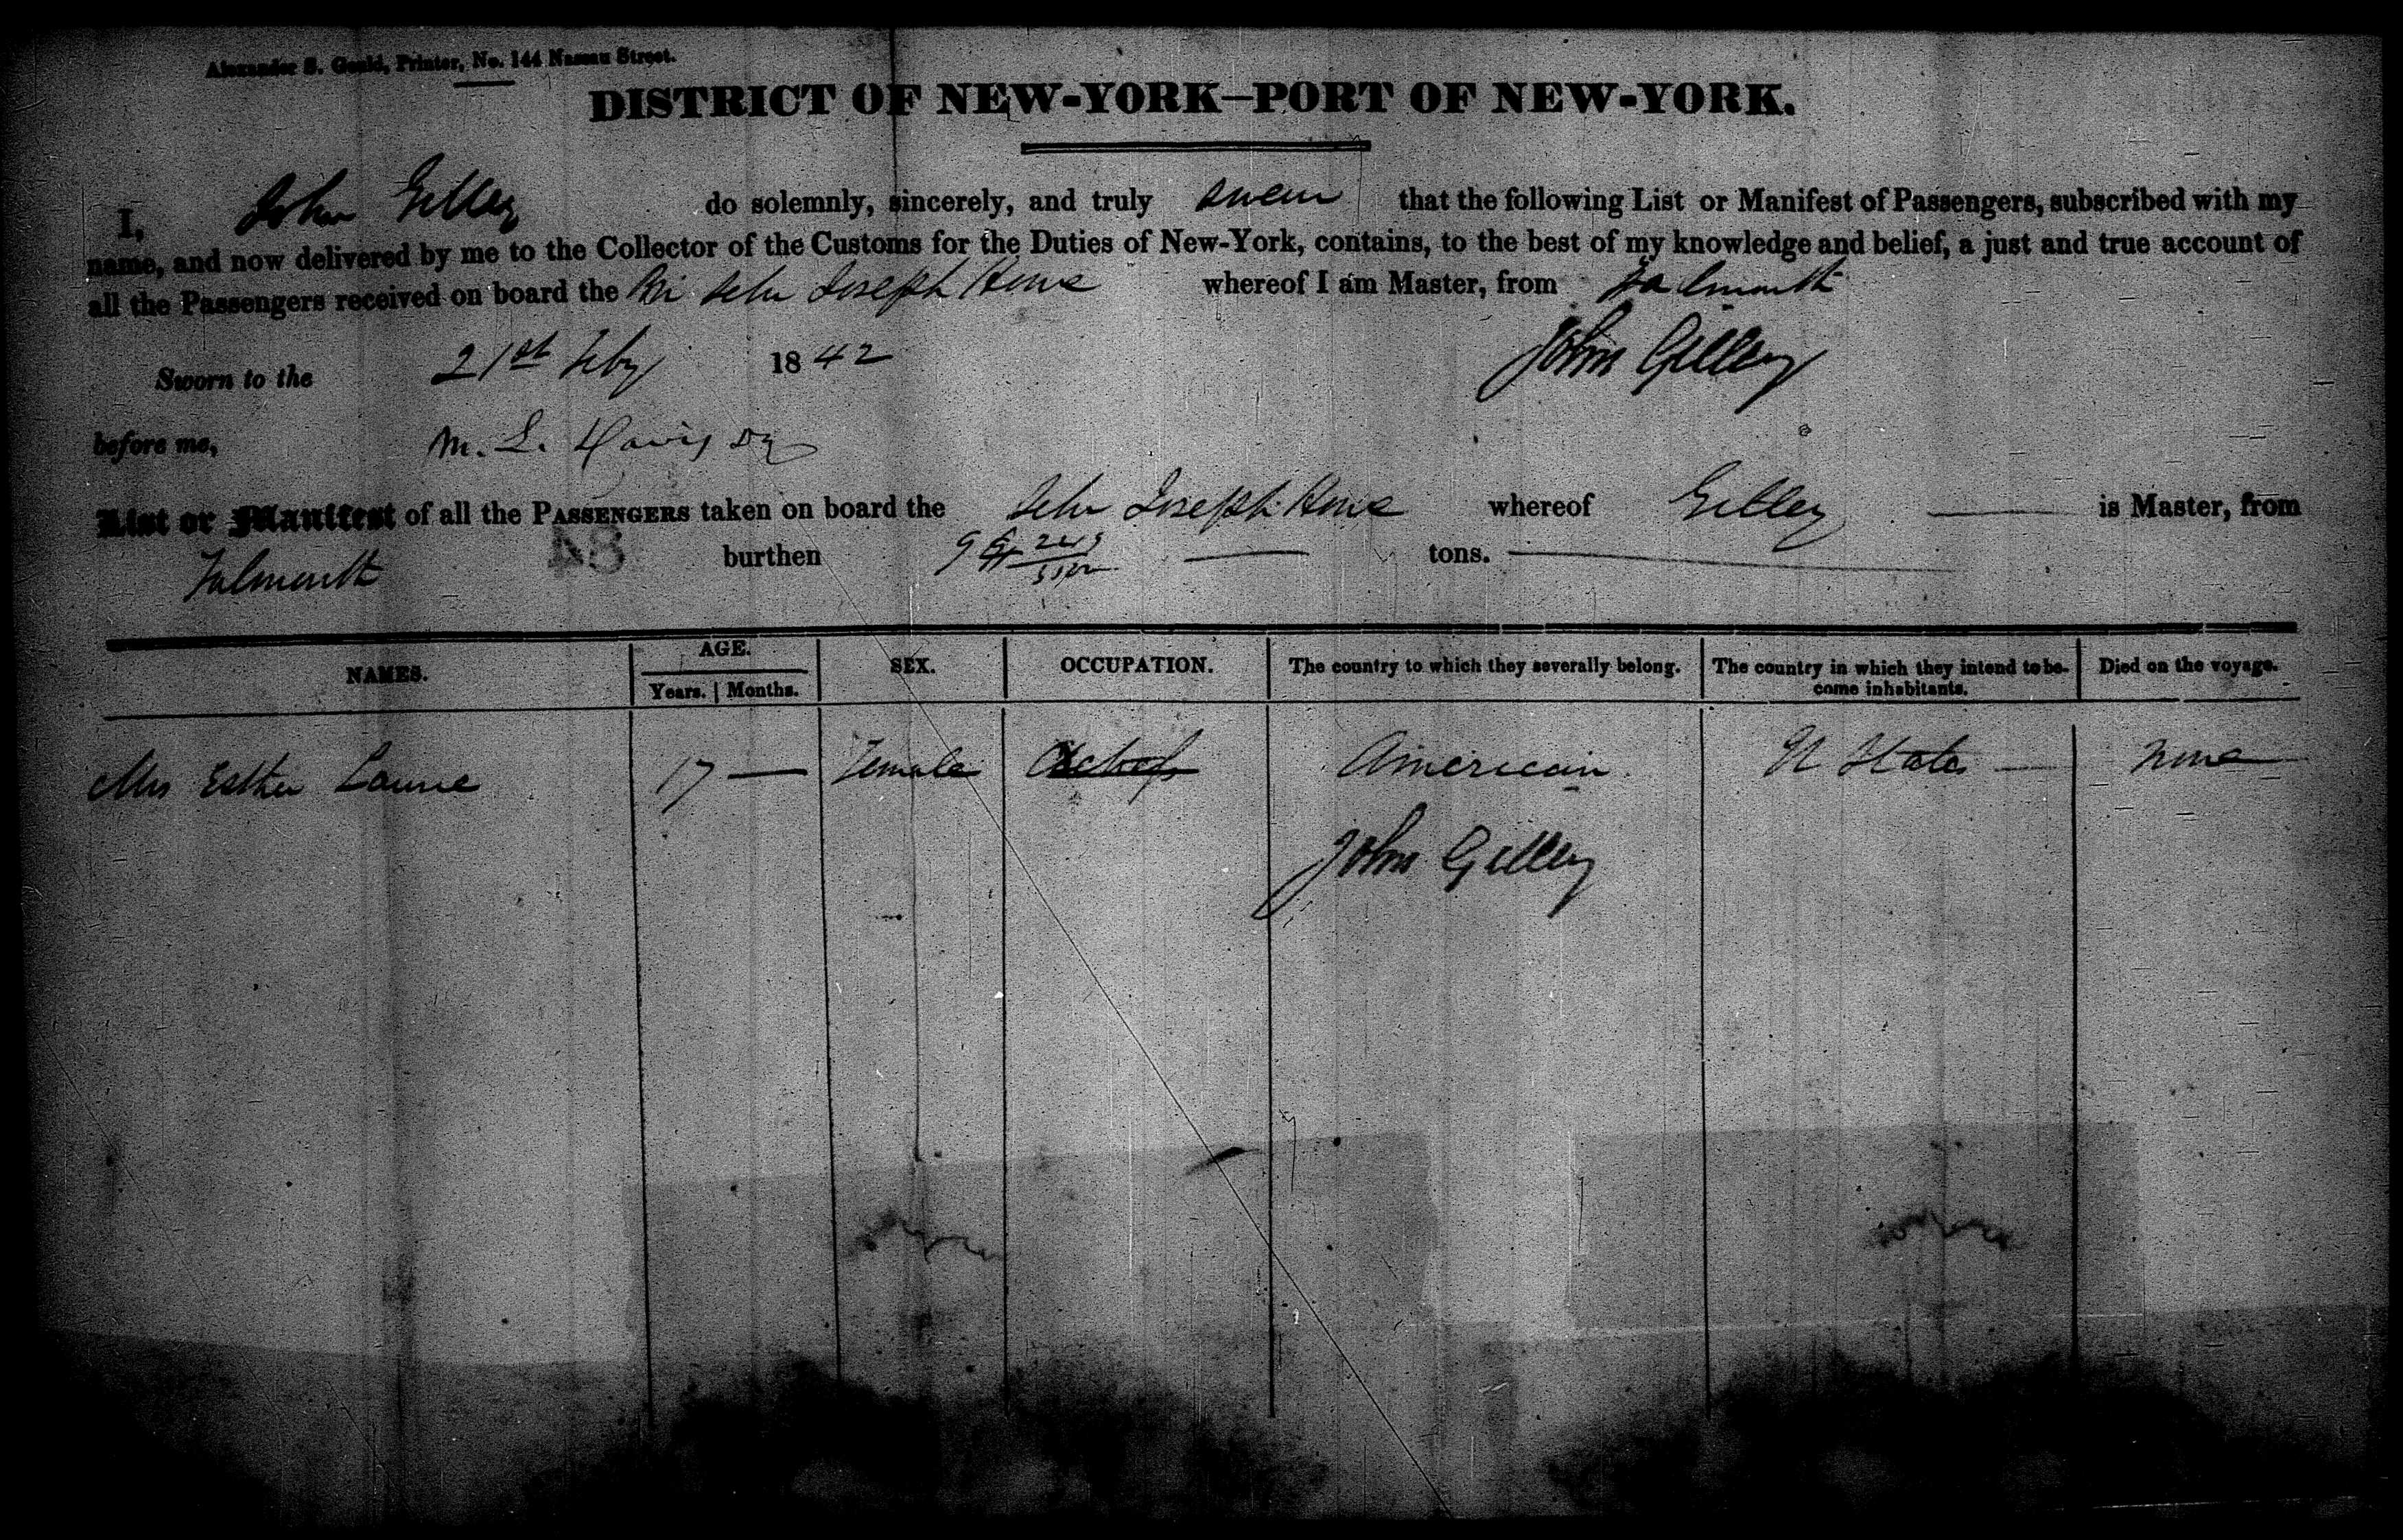 Alexander S. Gould, Printer, No. 144 Nassau Street.
DISTRICT OF NEW-YORK—PORT OF NEW-YORK.
I, John Gilley do solemnly, sincerely, and truly swear that the following List or Manifest of Passengers, subscribed with my
name, and now delivered by me to the Collector of the Customs for the Duties of New-York, contains, to the best of my knowledge and belief, a just and true account of
all the Passengers received on board the Bri Schr Joseph Howe whereof I am Master, from Falmouth
Sworn to the 21st Feby 1842 John Gilley
before me, M. L. Davis
List or Manifest of all the PASSENGERS taken on board the Schr Joseph Howe whereof Gilley is Master, from
Falmouth 48 burthen tons.
NAMES. AGE. SEX. OCCUPATION. The country to which they severally belong. The country in which they intend to be-come inhabitants. Died on the voyage.
Years. Months.
Mrs Esther Laurie 17 — Female American U States — None
John Gilley